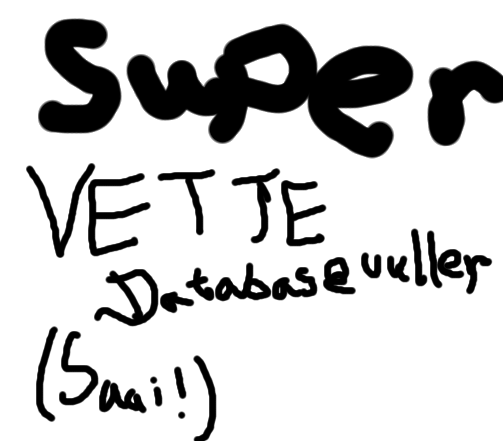 Super
VETTE
Databasevuller
(Saai!)